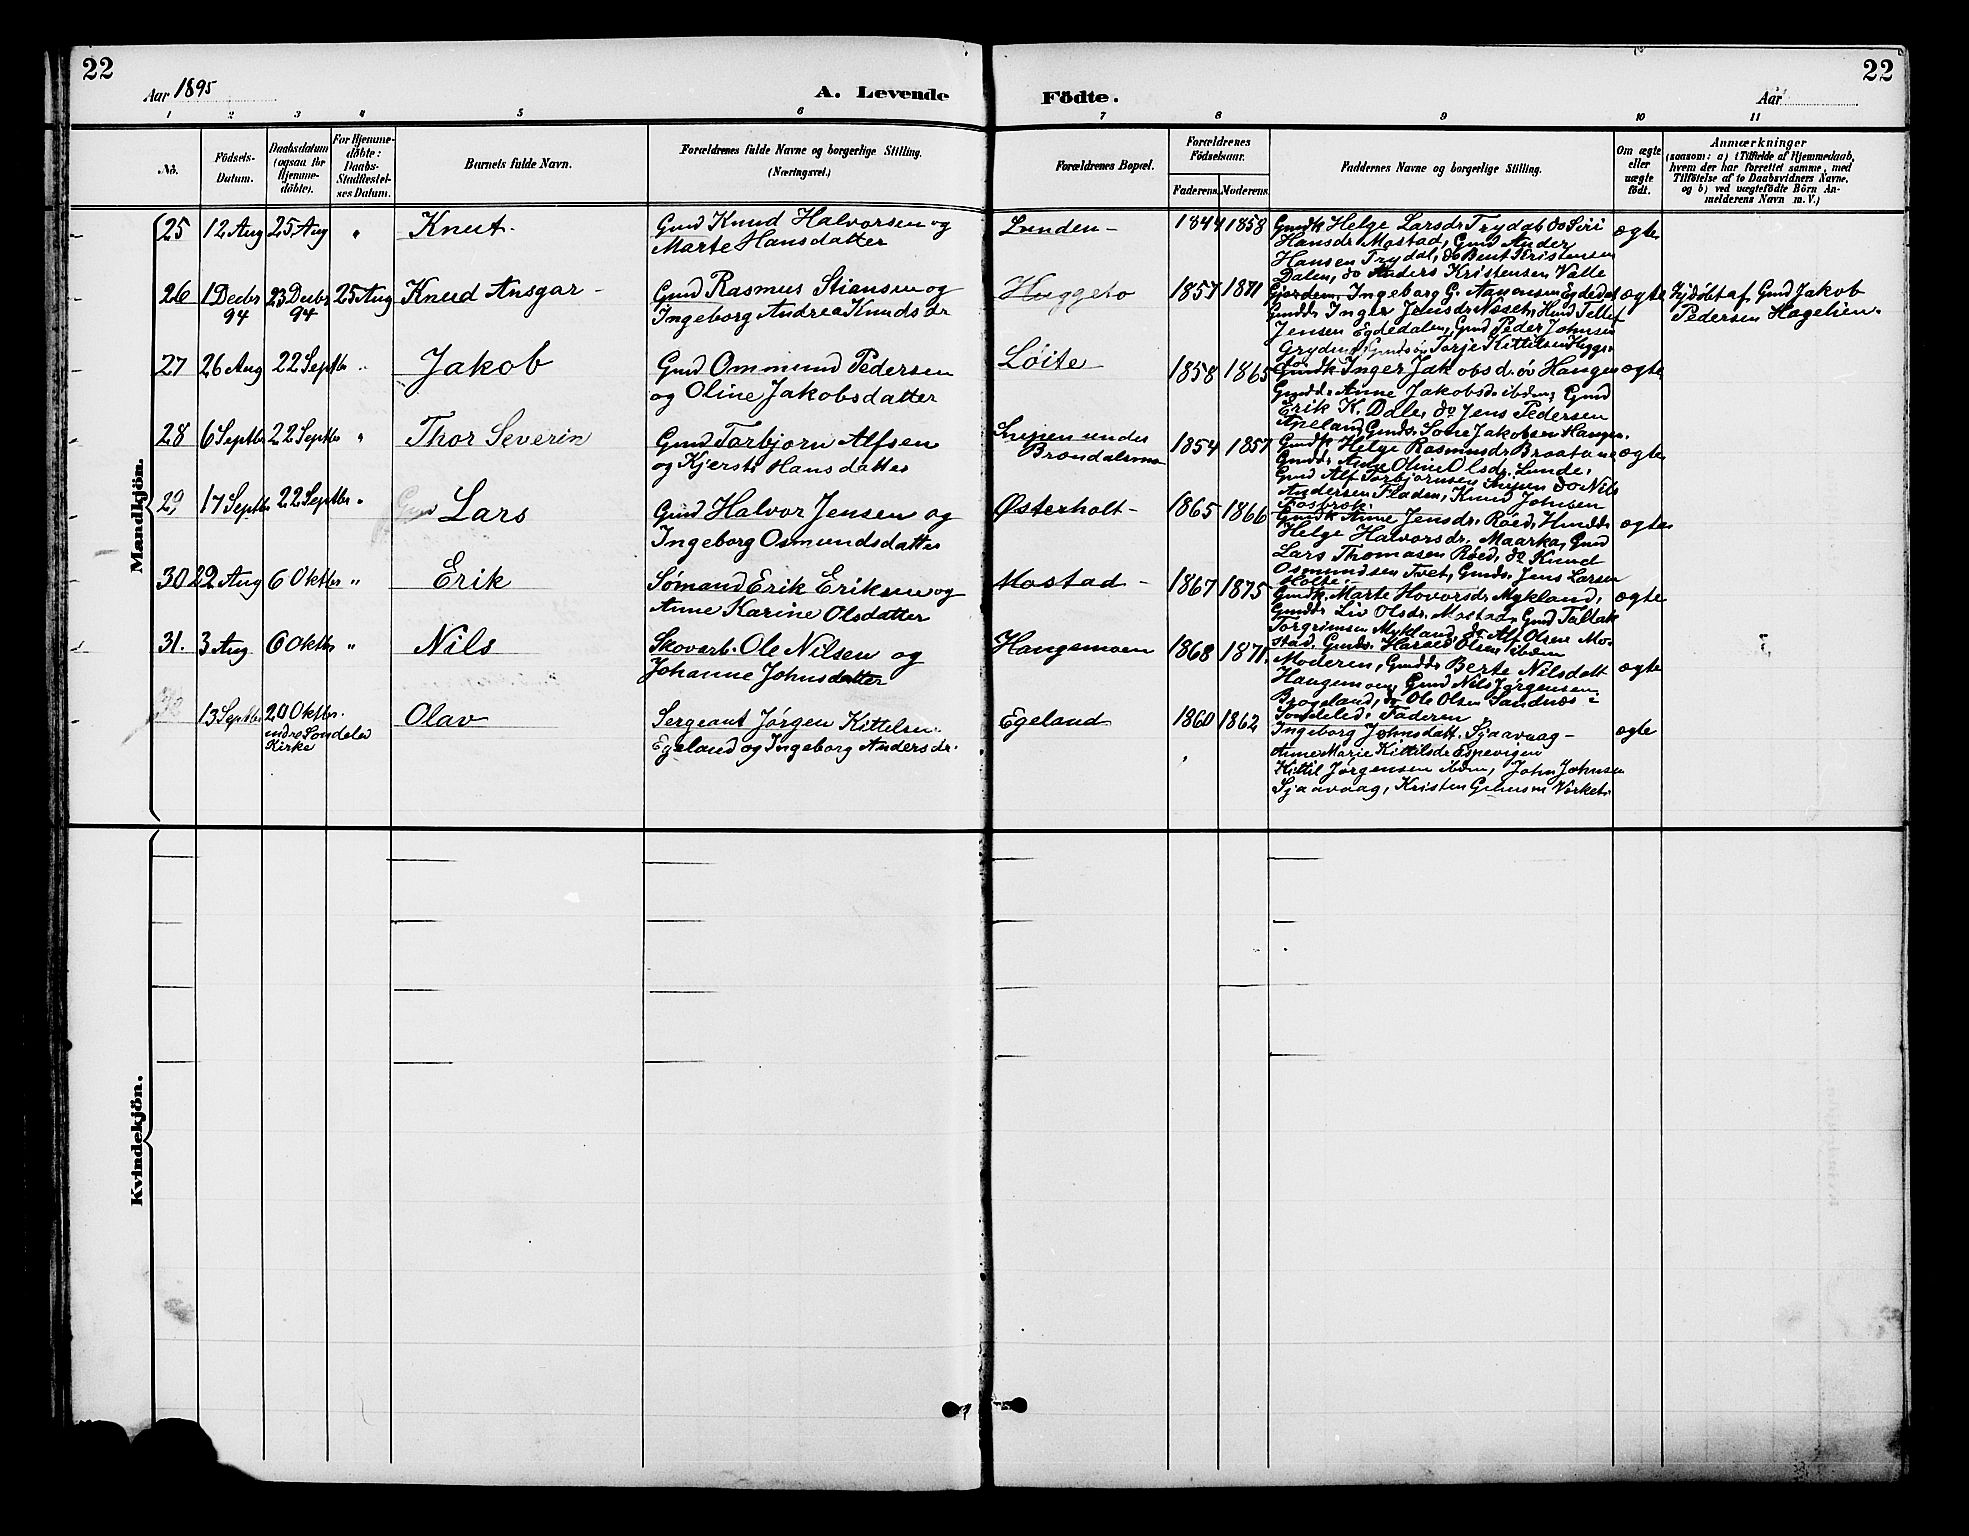 22
22
Aar 1895
A. Levende
Födte.
Aar
1 2 3 4 5 6 7 8 9 10 11
No.
Födsels-
Datum.
Daabsdatum
(ogsaa for
Hjemme-
döbte).
For Hjemme-
döbte:
Daabs-
Stadfæstel-
ses Datum.
Barnets fulde Navn.
Forældrenes fulde Navne og borgerlige Stilling.
(Næringsvei.)
Forældrenes Bopæl.
Forældrenes
Födselsaar.
Faderens. Moderens.
Faddernes Navne og borgerlige Stilling.
Om ægte
eller
uægte
födt.
Anmærkninger
(saasom: a) i Tilfælde af Hjemmedaab,
hvem der har forrettet samme, med
Tilföielse af to Daabsvidners Navne,
og b) ved uægtefödte Börn An-
melderens Navn m. V.)
Mandkjön.
25 12 Aug 25 Aug " Knut.
Gmd Knud Halvorsen og
Marte Hansdatter
Lunden
1844 1858
Gmdk Helge Larsdr Trydal do Siri
Hansdr Mostad, Gmd Ander
Hansen Trydal, do Bent Kristensen
Dalen, do Anders Kristensen Valle
ægte
26 1 Decbr 94 23 Decbr 94 25 Aug Knud Ansgar
Gmd Rasmus Stiansen og
Ingeborg Andrea Knudsdr
Huggeto
1857 1871
Gjorden, Ingeborg G. Aanonsen Egdedal
Gmdd. Inger Jensdr Næset, Hmd Tellef
Jensen Egdedalen, Gmd Peder Johnsen
Gryden, Gmdsøn Torje Kittilsen Hegge-
to
ægte
Hjdöbt af Gmd Jakob
Pedersen Hagelien.
27 26 Aug 22 Septbr " Jakob
Gmd Ommund Pedersen
og Oline Jakobsdatter
Löite
1858 1865
Gmdk Inger Jakobsd. öv Haugen
Gmdd. Anne Jakobsd. ibdm, Gmd
Erik K. Dale, do Jens Pedersen
Apeland, Gmds. Sone Jakobsen Haugen.
ægte
28 6 Septbr 22 Septbr " Thor Severin
Gmd Torbjorn Alfsen
og Kjersti Hansdatter
Lunen under
1854 1857
Gmdk Helge Rasmusdr Braatane
Gmdd. Anne Oline Olsdr. Lunde,
Gmd Alf Torbjornsen do Nils
Andersen Fladen, Knud Johnsen
Fosbrok.
ægte
29 17 Septbr 22 Septbr " Lars
Gmd Halvor Jensen og
Ingeborg Osmundsdatter
Østerholt
1865 1866
Gmdk Anne Jensdr. Röed, Hmdd.
Helge Halvorsdr. Maarka, Gmd
Lars Thomasen Röed, do Knud
Osmundsen Tvet, Gmds. Jens Larsen
Holte.
ægte
30 22 Aug 6 Oktbr " Erik
Sömand Erik Eriksen og
Anne Karine Olsdatter
Mostad
1867 1875
Gmdk. Marte Hovorsdr. Mykland,
Gmdd. Liv Olsdr. Mostad, Gmd Tallak
Torgrimsen Mykland, do Alf Olsen Mo-
stad, Gmds. Harald Olsen ibdm
ægte
31. 3 Aug 6 Oktbr " Nils
Skovarb. Ole Nilsen og
Johanne Johnsdatter
Haugemoen
1868 1871.
Moderen, Gmdd. Berte Nilsdatt
Haugemoen, Gmd Nils Jörgensen
Brogeland, do Ole Olsen Sandnes
Söndeled. Faderen
ægte
32 13 Septbr 20 Oktbr.
indre Söndeled
Kirke
Olav
Sergeant Jörgen Kittelsen
Egeland og Ingeborg Andersdr.
Egeland
1860 1862
Ingeborg Johnsdatt. Sjaavaag
Anne Marie Kittilsdr Espevigen
Kittil Jörgensen ibdm, John Johnsen
Sjaavaag, Kristen Værket
ægte
Kvindekjön.